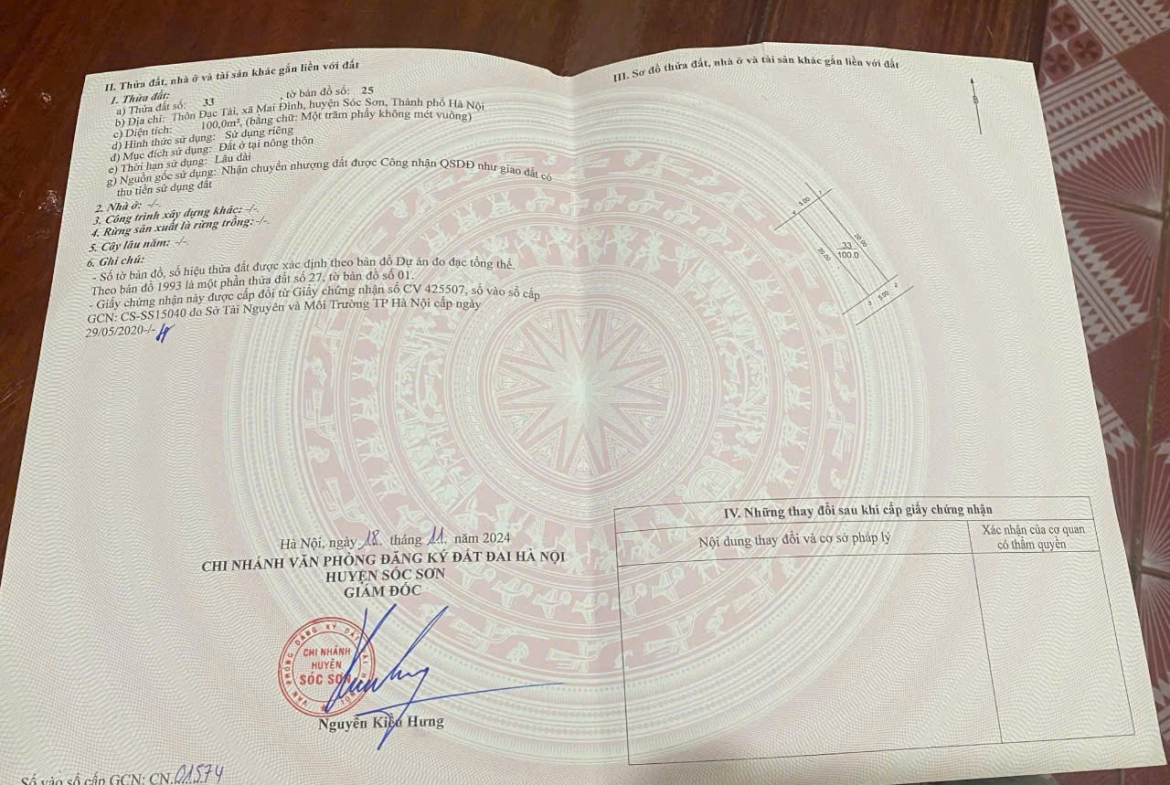 II. Thửa đất, nhà ở và tài sản khác gắn liền với đất
1. Thửa đất:
a) Thửa đất số: 33 , tờ bản đồ số: 25
b) Địa chỉ: Thôn Đạc Tài, xã Mai Đình, huyện Sóc Sơn, Thành phố Hà Nội
c) Diện tích: 100,0m², (bằng chữ: Một trăm phẩy không mét vuông)
d) Hình thức sử dụng: Sử dụng riêng
đ) Mục đích sử dụng: Đất ở tại nông thôn
e) Thời hạn sử dụng: Lâu dài
g) Nguồn gốc sử dụng: Nhận chuyển nhượng đất được Công nhận QSDĐ như giao đất có
thu tiền sử dụng đất
2. Nhà ở: -/-.
3. Công trình xây dựng khác: -/-.
4. Rừng sản xuất là rừng trồng: -/-.
5. Cây lâu năm: -/-.
6. Ghi chú:
- Số tờ bản đồ, số hiệu thửa đất được xác định theo bản đồ Dự án đo đạc tổng thể.
Theo bản đồ 1993 là một phần thửa đất số 27, tờ bản đồ số 01.
- Giấy chứng nhận này được cấp đổi từ Giấy chứng nhận số CV 425507, số vào sổ cấp
GCN: CS-SS15040 do Sở Tài Nguyên và Môi Trường TP Hà Nội cấp ngày
29/05/2020-/-
Hà Nội, ngày 18. tháng 11. năm 2024
CHI NHÁNH VĂN PHÒNG ĐĂNG KÝ ĐẤT ĐAI HÀ NỘI
HUYỆN SÓC SƠN
GIÁM ĐỐC
CHI NHÁNH
HUYỆN
SÓC SƠN
Nguyễn Kiều Hưng
Số vào sổ cấp GCN: CN.01574
III. Sơ đồ thửa đất, nhà ở và tài sản khác gắn liền với đất
B
5.00
20.00
20.00
33
100.0
5.00
IV. Những thay đổi sau khi cấp giấy chứng nhận
Nội dung thay đổi và cơ sở pháp lý
Xác nhận của cơ quan
có thẩm quyền